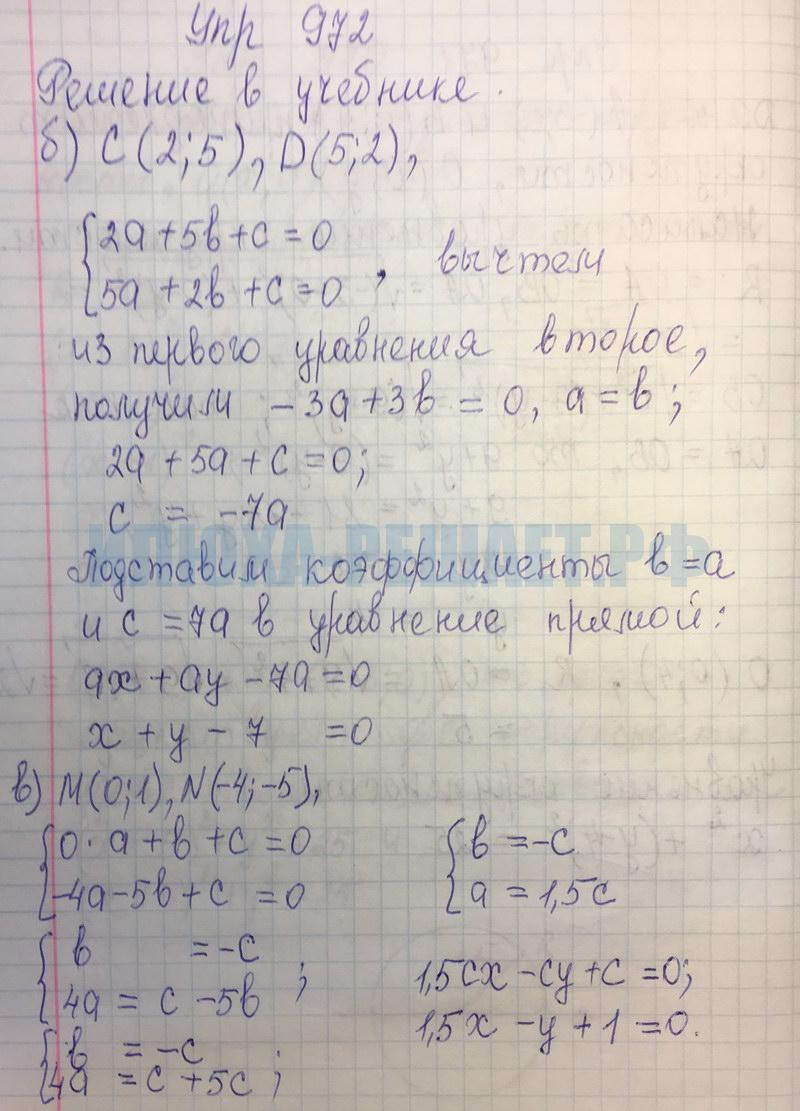 Упр 972
Решение в учебнике.
б) C(2;5), D(5;2),
{2a+5b+c=0
{5a+2b+c=0, вычтем
из первого уравнения второе,
получили -3a+3b=0, a=b;
2a+5a+c=0;
c = -7a
КЛЮХА-РЕШАЕТ.РФ
Подставим коэффициенты b=a
и c=7a в уравнение прямой:
ax+ay-7a=0
x+y-7 =0
в) M(0;1), N(-4;-5),
{0·a+b+c=0
{-4a-5b+c=0
{b =-c
{4a = c-5b;
{b = -c
{4a = c+5c;
{b =-c
{a = 1,5c
1,5cx-cy+c=0;
1,5x-y+1=0.